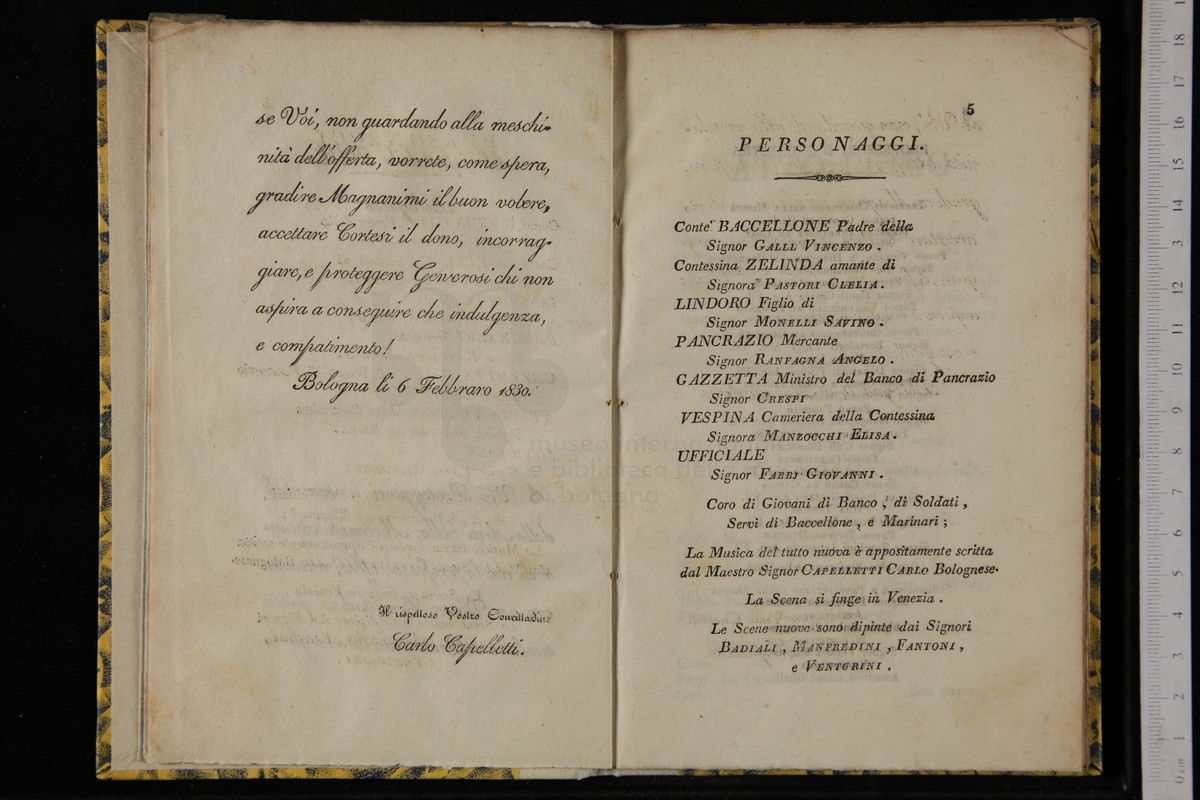 se Voi, non guardando alla meschi-
nità dell'offerta, vorrete, come spera,
gradire Magnanimi il buon volere,
accettare Cortesi il dono, incorrag-
giare, e proteggere Generosi chi non
aspira a conseguire che indulgenza,
e compatimento!
Bologna li 6 Febbraro 1830.
Il rispettoso Vostro Concittadino
Carlo Capelletti.
5
PERSONAGGI.
Conte BACCELLONE Padre della
Signor GALLI VINCENZO.
Contessina ZELINDA amante di
Signora PASTORI CLELIA.
LINDORO Figlio di
Signor MONELLI SAVINO.
PANCRAZIO Mercante
Signor RANFAGNA ANGELO.
GAZZETTA Ministro del Banco di Pancrazio
Signor CRESPI
VESPINA Cameriera della Contessina
Signora MANZOCCHI ELISA.
UFFICIALE
Signor FABBI GIOVANNI.
Coro di Giovani di Banco, di Soldati,
Servi di Baccellone, e Marinari;
La Musica del tutto nuova è appositamente scritta
dal Maestro Signor CAPELLETTI CARLO Bolognese.
La Scena si finge in Venezia.
Le Scene nuove sono dipinte dai Signori
BADIALI, MANFREDINI, FANTONI,
e VENTURINI.
museo intern
e biblioteca de
di bologna
0 cm 1 2 3 4 5 6 7 8 9 10 11 12 13 14 15 16 17 18